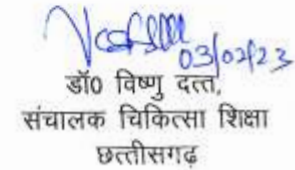 03/02/23
डॉ0 विष्णु दत्त,
संचालक चिकित्सा शिक्षा
छत्तीसगढ़